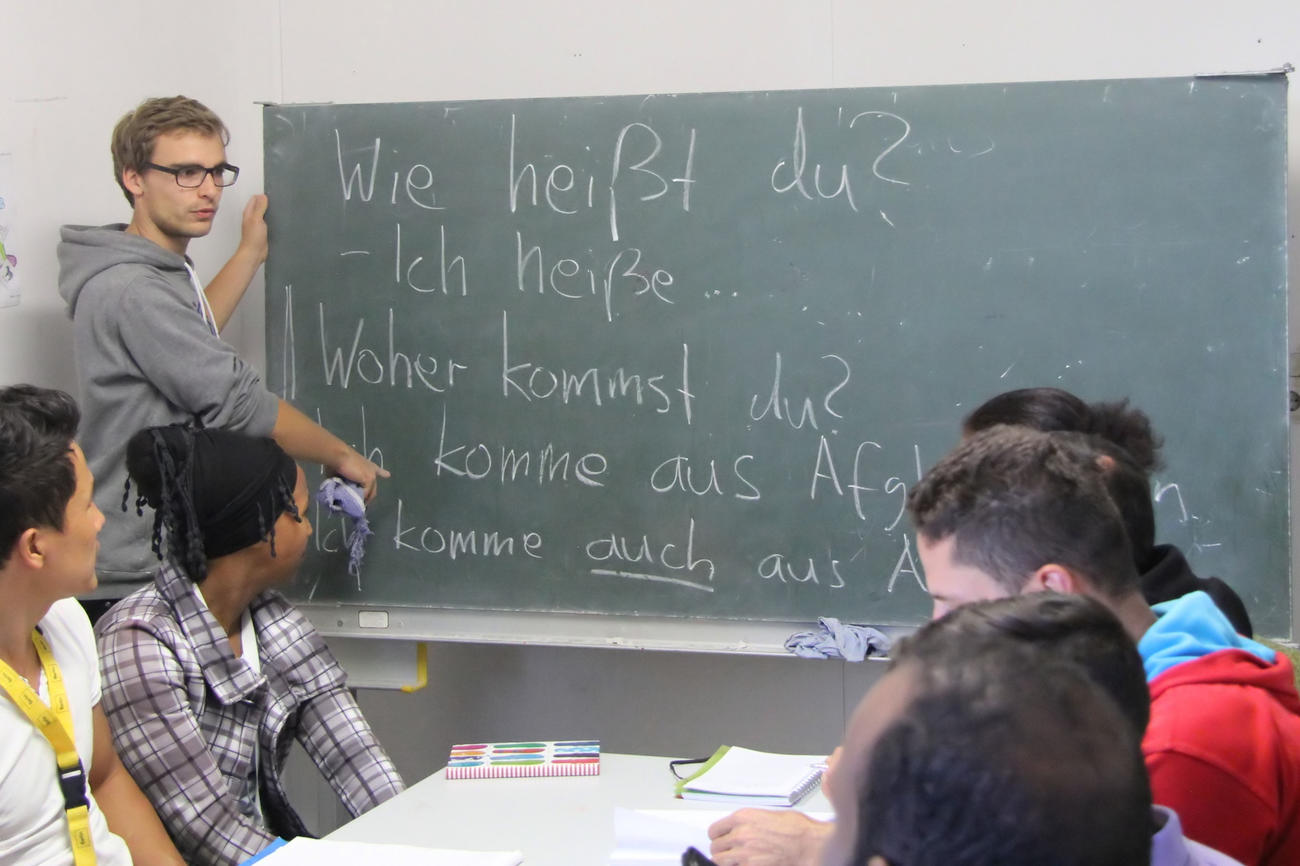 Wie heißt du?
- Ich heiße ...
Woher kommst du?
komme aus Afg
Ich komme auch aus A